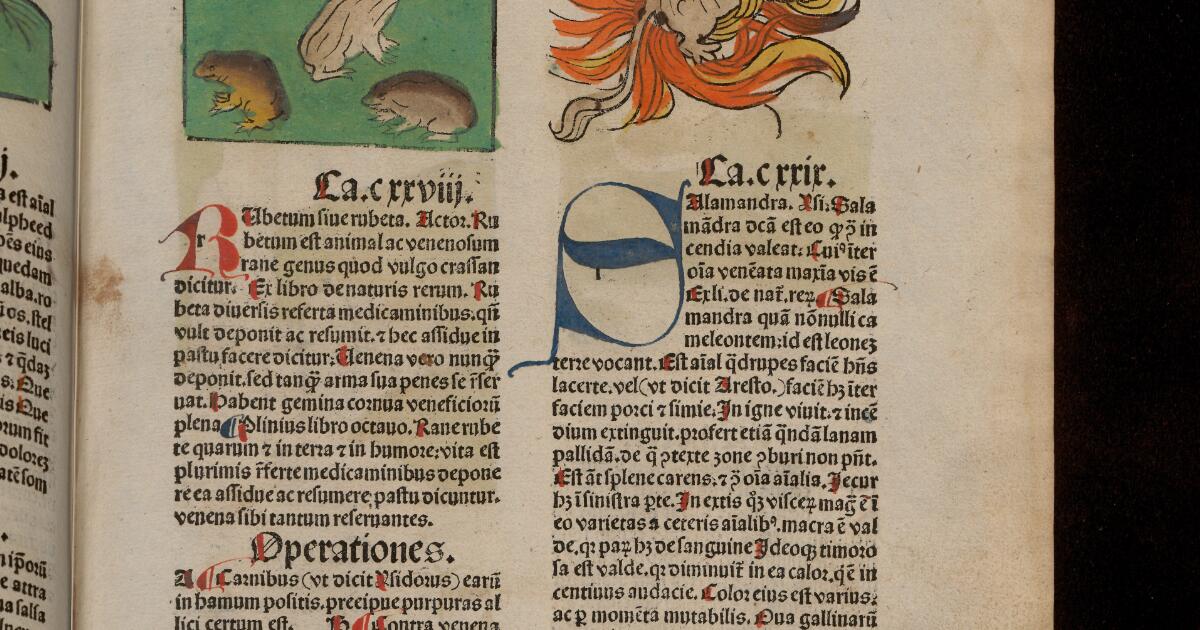 j.
a est aīal
alpheed
pēs eius
quedam
alba.ro
ūos.stel
eis luci
s ⁊ q̄daȝ
s: Que
is Que
orum fit
doloreȝ
atē som
n ip̄orū
e attra
na salsa
La.cxxviij.
RUbetum siue rubeta. Actor. Ru
betum est animal ac venenosum
rane genus quod vulgo crassan
dicitur. Ex libro de naturis rerum. Ru
beta diuersis referta medicaminibus. qn̄
vult deponit ac resumit. ⁊ hec assidue in
pastu facere dicitur: Uenena vero nunqȝ̄
deponit. sed tanqȝ̄ arma sua penes se r̄ser
uat. Habent gemina cornua veneficiorū
plena ¶ Plinius libro octauo. Rane rube
te quarum ⁊ in terra ⁊ in humore: vita est
plurimis r̄ferte medicaminibus depone
re ea assidue ac resumere pastu dicuntur.
venena sibi tantum reseruantes.
Operationes.
A ¶ Carnibus (vt dicit Ysidorus) earū
in hamum positis. precipue purpuras al
lici certum est. B ¶ Contra venena
La.cxxix.
SAlamandra. Ysi: Sala
mādra dcā est eo ꝙ ꝯ̄ in
cendia valeat: Cuiꝰ iter
oīa venēata maxīa vis ē
Ex li. de nat̄. reꝝ. ¶ Sala
mandra quā nōnulli ca
meleontem: id est leoneȝ
terre vocant. Est aīal q̄drupes faciē hn̄s
lacerte. vel (vt dicit Aresto.) faciē hȝ īter
faciem porci ⁊ simie. In igne viuit. ⁊ incē
dium extinguit. profert etiā qn̄dā lanam
pallidā. de q̄ ꝯtexte zone ꝯburi non pn̄t.
Est āt splene carens. ⁊ ꝯ̄ oīa aīalia. Jecur
hȝ ī sinistra ꝑte. In extis qȝ visceꝝ maḡ ē ī
eo varietas a ceteris aīalibꝰ. macra ē val
de. qꝛ paꝝ hȝ de sanguine Ideoqȝ timoro
sa est valde. qꝛ diminuit̄ in ea calor. q̄ ē in
centiuus audacie. Color eius est varius:
ac ꝑ momēta mutabilis. Oua gallinarū